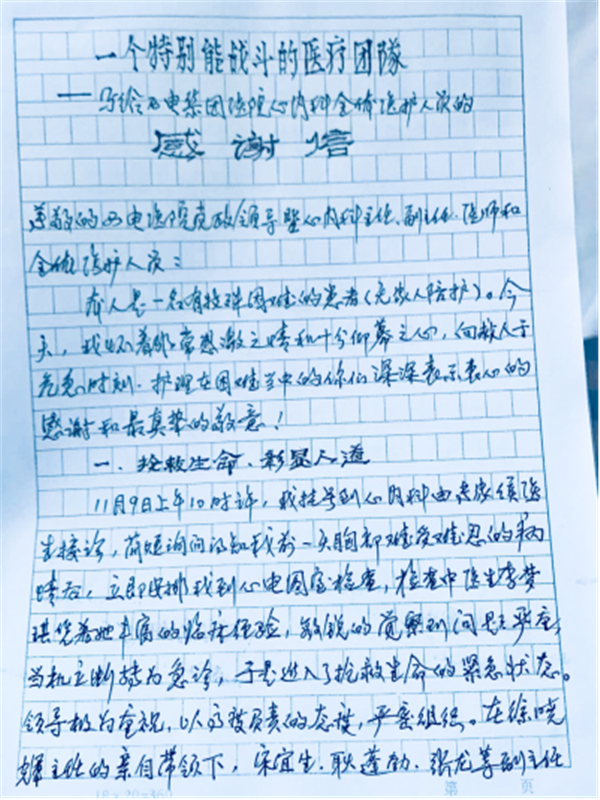 一个特别能战斗的医疗团队
——写给西电集团医院心内科全体医护人员的
感谢信
尊敬的西电医院党政领导暨心内科主任、副主任、医师和
全体医护人员：
本人是一名有特殊困难的患者（无家人陪护）。今
天，我怀着非常感激之情和十分仰慕之心，向救人于
危急时刻、护理在困难当中的你们深深表示衷心的
感谢和最真挚的敬意！
一、抢救生命、彰显人道
11月9日上午10时许，我挂号到心内科由专家级医
生接诊，简短询问得知我前一天胸部难受难忍的病
情后，立即安排我到心电图室检查，检查中医生李梦
琪凭着她丰富的临床经验，敏锐的觉察到问题严重，
当机立断转为急诊，于是进入了抢救生命的紧急状态。
领导极为重视，以高度负责的态度，严密组织。在徐晓
辉主任的亲自带领下，宋宜生、耿莲勃、张龙等副主任
18×20=360 第 页